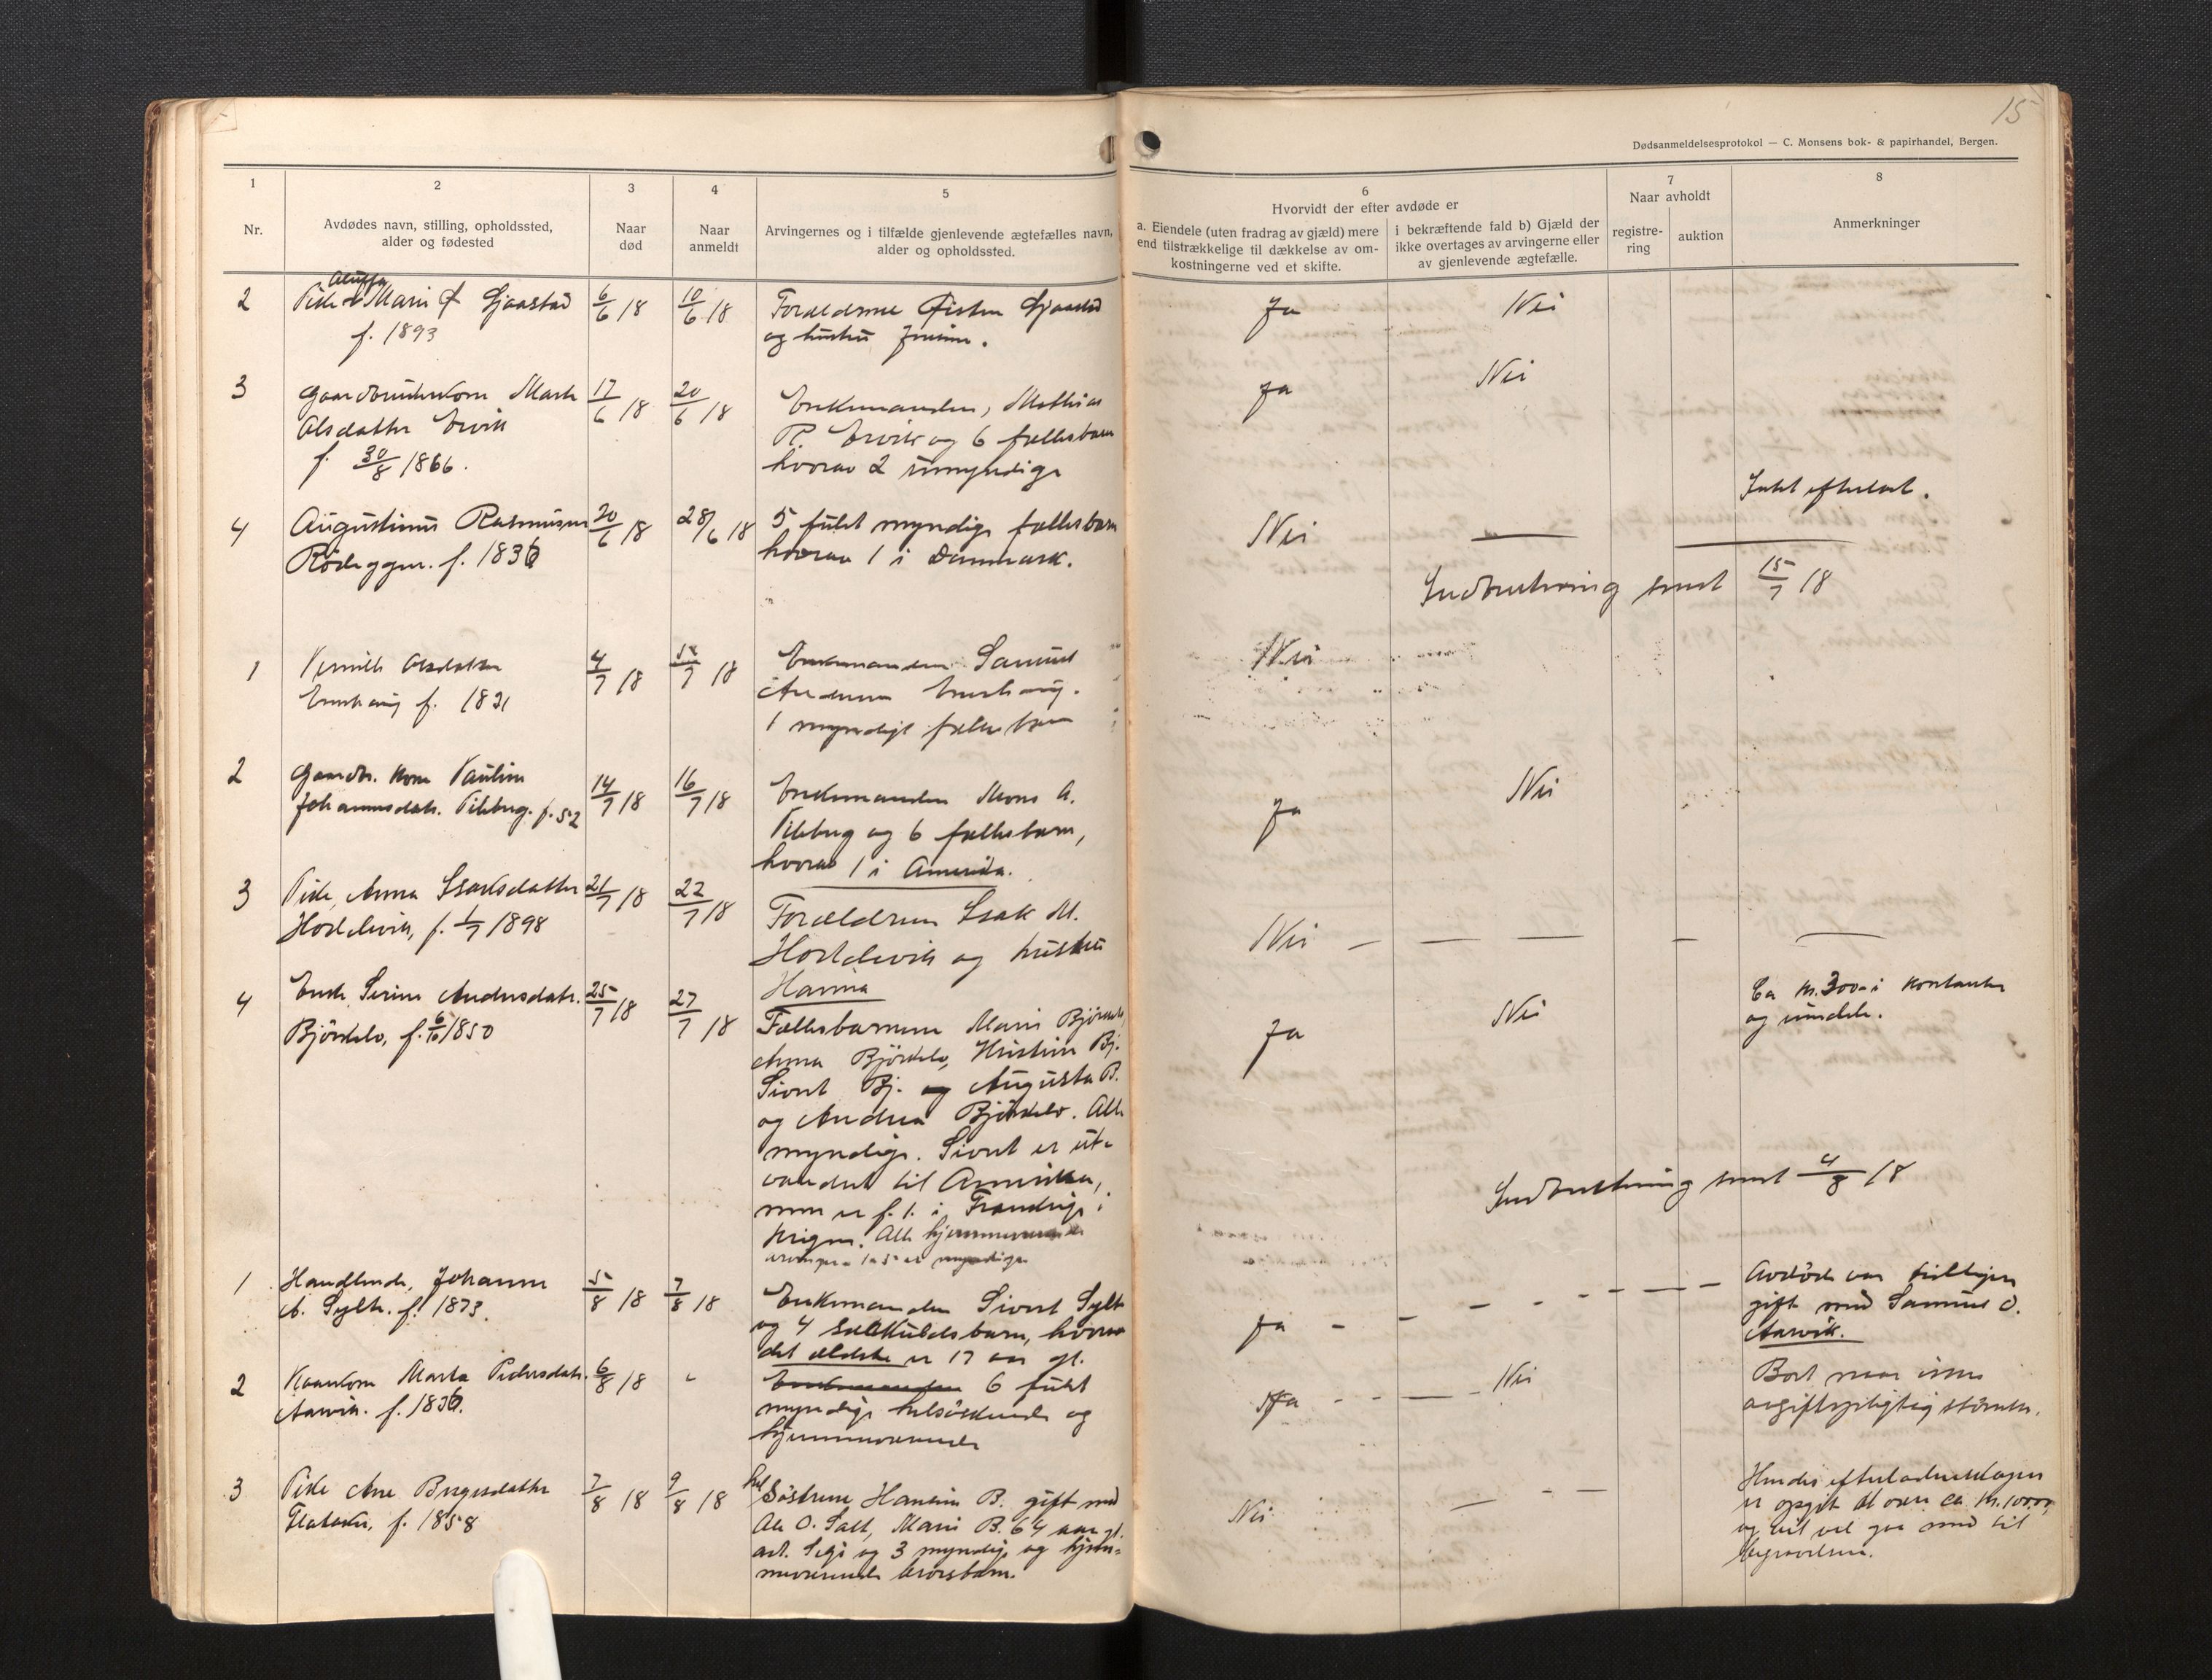 15
Dødsanmeldelsesprotokol — C. Monsens bok- & papirhandel, Bergen.
1
Nr.
2
Avdødes navn, stilling, opholdssted,
alder og fødested
3
Naar
død
4
Naar
anmeldt
5
Arvingernes og i tilfælde gjenlevende ægtefælles navn,
alder og opholdssted.
6
Hvorvidt der efter avdøde er
a. Eiendele (uten fradrag av gjæld) mere
end tilstrækkelige til dækkelse av om-
kostningerne ved et skifte.
i bekræftende fald b) Gjæld der
ikke overtages av arvingerne eller
av gjenlevende ægtefælle.
7
Naar avholdt
registre-
ring
auktion
8
Anmerkninger
2
Pike Marie Ø Sjaastad
f. 1893
6/6 18
10/6 18
Forældrene Øisten Sjaastad
og hustru
Ja
Nei
3
Gaardbrukerkone Marte
Olsdatter Ervik
f. 30/8 1866.
17/6 18
20/6 18
Enkemanden, Mathias
R. Ervik og 6 fællesbarn
hvorav 2 umyndige
Ja
Nei
4
Augustinus Rasmussen
f. 1836
20/6 18
28/6 18
5 fuldt myndige fællesbarn
hvorav 1 i Danmark.
Nei
Intet efterlat.
Indberetning sendt 15/7 18
1
Pernille Olsdatter
f. 1831
4/7 18
5/7 18
Enkemanden Samuel
Andersen
1 myndigt fælles barn
Nei
2
Gaardbr. kone Pauline
Johannesdatr. f. 52
14/7 18
16/7 18
Enkemanden Mons A.
og 6 fællesbarn,
hvorav 1 i Amerika.
Ja
Nei
3
Pike, Anna Isaksdatter
Hordevik, f. 1/7 1898
21/7 18
22/7 18
Forældrene Isak M.
Hordevik og hustru
Hanna
Nei
4
Enke, Serine Andersdatr.
Björkelo, f. 6/10 1850
25/7 18
27/7 18
Fællesbarnene Marie Björkelo,
Anna Björkelo, Kristine Bj.
Sivert Bj. og Augusta B.
og Andrea Björkelo. Alle
myndige. Sivert er ut-
vandret til Amerika,
men er f. t. i Frankrige i
krigen. Alle hjemmeværende
arvinger er myndige
Ja
Nei
Ca kr. 300 i kontanter
og eiendele.
Indberetning sendt 4/8 18
1
Handlende, Johanne
A. Sylte. f. 1873.
5/8 18
7/8 18
Enkemanden Sivert Sylte
og 4 særkuldsbarn, hvorav
det ældste er 17 aar gl.
Ja
Avdöde var tidligere
gift med Samuel O.
Aarvik.
2
Kaarkone Marta Pedersdatr.
Aarvik. f. 1836.
6/8 18
"
Enkemanden 6 fuldt
myndige helsöskende og
hjemmeværende
Ja
Nei
Bort naar
avgiftspligtig störrelse.
3
Pike Ane Brynesdatter
f. 1858
7/8 18
9/8 18
hel
Söstrene Hansine B. gift med
Ole O. Salt, Marie B. 64 aar gl.
og 3 myndige og hjem-
meværende brorsbarn.
Nei
Hendes efterladenskaper
er opgit at være ca. kr. 100.00,
og vil vel gaa med til
begravelsen.